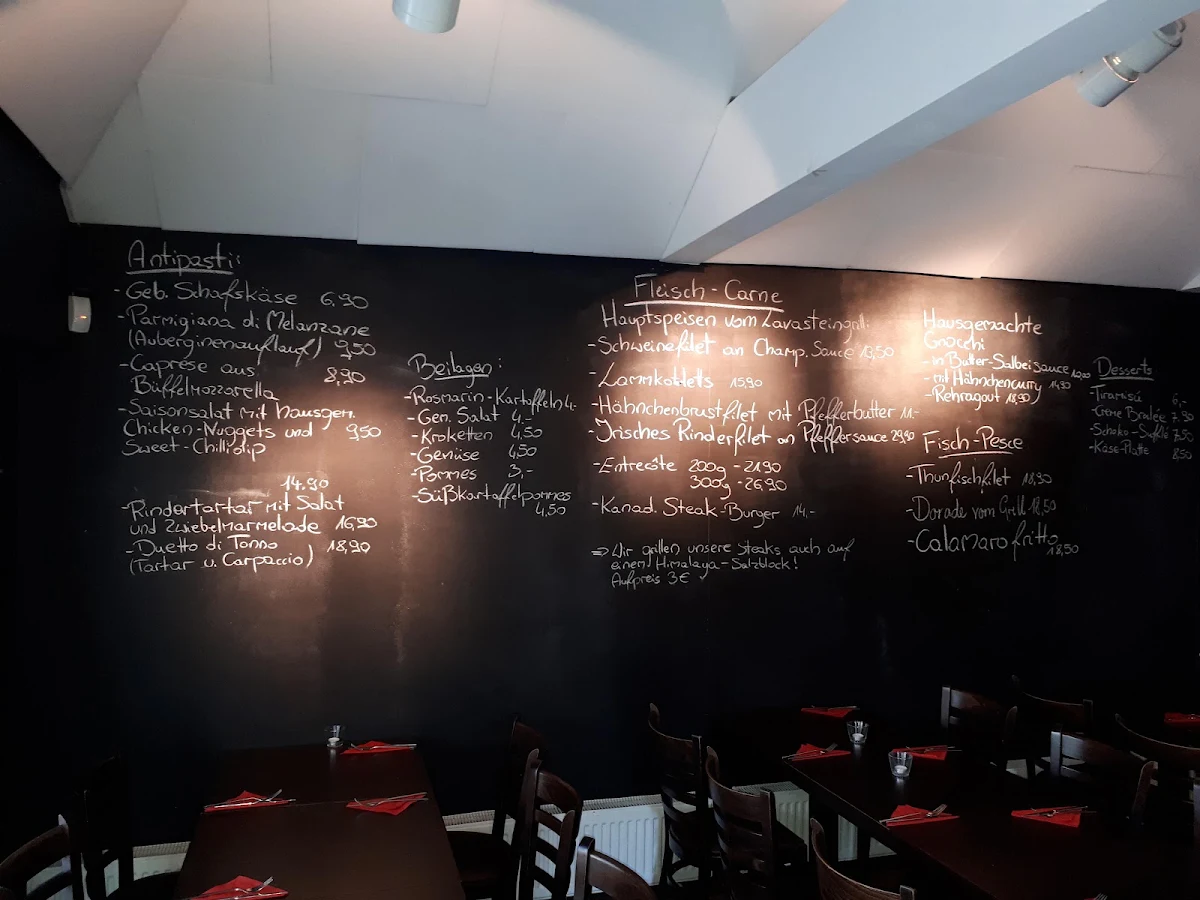 Antipasti:
- Geb. Schafskäse 6,90
- Parmigiana di Melanzane
(Auberginenauflauf) 9,50
- Caprese aus 8,90
Büffelmozzarella
- Saisonsalat mit hausgem.
Chicken-Nuggets und 9,50
Sweet-Chillidip
14,90
- Rindertartar mit Salat
und Zwiebelmarmelade 16,90
- Duetto di Tonno 18,90
(Tartar u. Carpaccio)
Beilagen:
- Rosmarin-Kartoffeln 4,-
- Gem. Salat 4,-
- Kroketten 4,50
- Gemüse 4,50
- Pommes 3,-
- Süßkartoffelpommes
4,50
Fleisch-Carne
Hauptspeisen vom Lavasteingrill:
- Schweinefilet an Champ. Sauce 13,50
- Lammkotletts 15,90
- Hähnchenbrustfilet mit Pfefferbutter 11.-
- Irisches Rinderfilet an Pfeffersauce 29,90
- Entrecôte 200g - 21,90
300g - 26,90
- Kanad. Steak-Burger 14.-
=> Wir grillen unsere Steaks auch auf
einem Himalaya-Salzblock!
Aufpreis 3€
Hausgemachte
Gnocchi
- in Butter-Salbei sauce
- mit Hähnchencurry 14,90
- Rehragout 18,90
Fisch-Pesce
- Thunfischfilet 18,90
- Dorade vom Grill 18,50
- Calamaro fritto 18,50
Desserts
- Tiramisú 6,-
- Crème Brulée 7,50
- Schoko-Suflé 7,50
- Käse-Platte 8,50